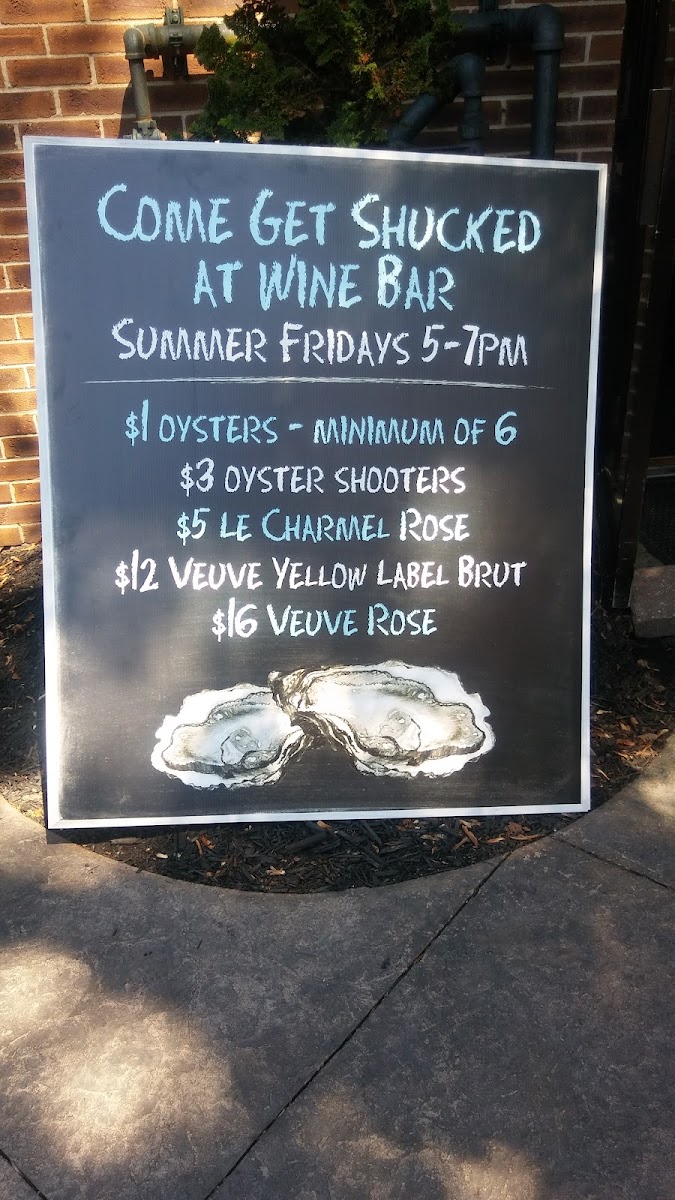 COME GET SHUCKED
AT WINE BAR
SUMMER FRIDAYS 5-7PM
$1 OYSTERS - MINIMUM OF 6
$3 OYSTER SHOOTERS
$5 LE CHARMEL ROSE
$12 VEUVE YELLOW LABEL BRUT
$16 VEUVE ROSE